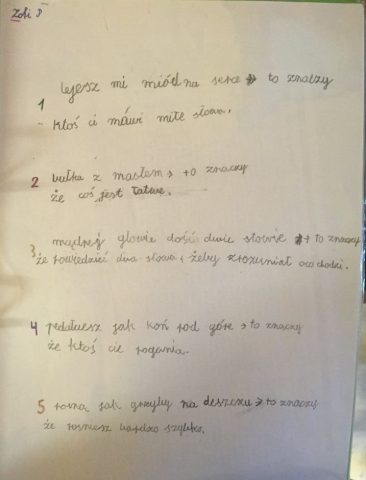 Zosi P
1 lejesz mi miód na serce → to znaczy
ktoś ci mówi miłe słowa.
2 bułka z masłem → to znaczy
że coś jest łatwe.
3 mądrej głowie dość dwie słowie → to znaczy
że powiedzieć dwa słowa, żeby zrozumiał o co chodzi.
4 pedałujesz jak koń pod górę → to znaczy
że ktoś cie pogania.
5 rosną jak grzyby na deszczu → to znaczy
że rośniesz bardzo szybko.